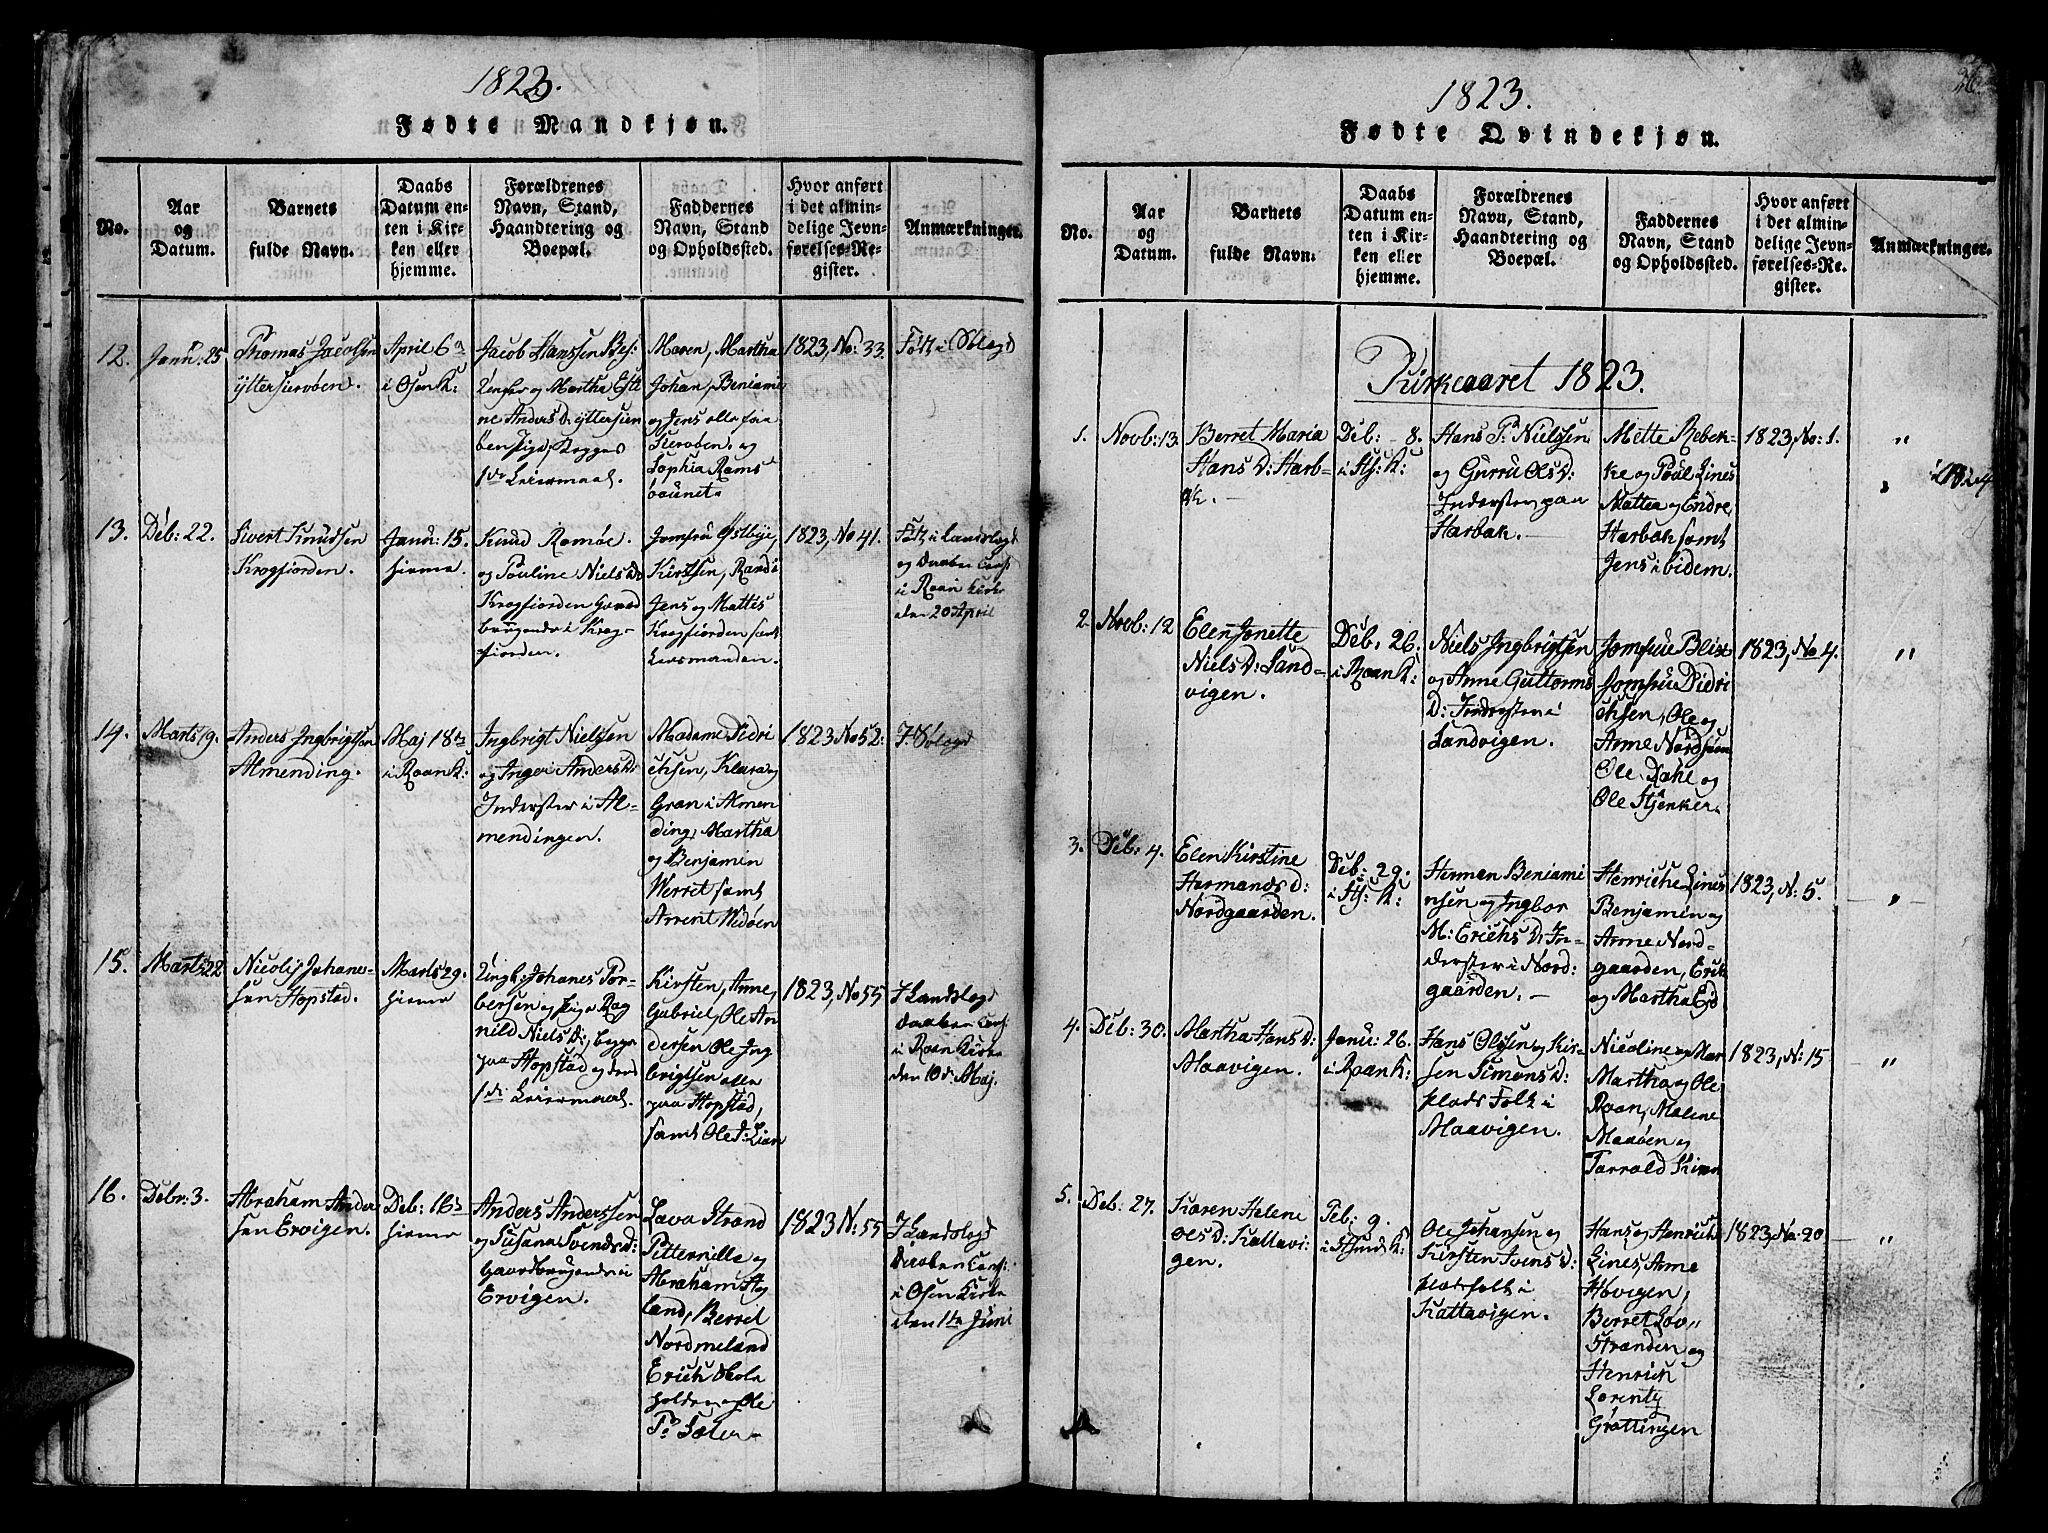 1823.
Fødte Mandkjøn.
No.
Aar
og
Datum.
Barnets
fulde Navn.
Daabs
Datum en-
ten i Kir-
ken eller
hjemme.
Forældrenes
Navn, Stand,
Haandtering og
Boepæl.
Faddernes
Navn, Stand
og Opholdssted.
Hvor anført
i det almin-
delige Jevn-
førelses-Re-
gister.
Anmærkninger.
12.
Janu: 25
Thomas Jacobsen
ytter
April 6
i Osen K:
Jacob Hanssen
og Martha
Anders D:
Leiermaal.
Maren, Martha
Johan, Benjamin
og Jens alle fra
og
Sophia Rams
1823, No: 33.
13.
Deb: 22.
Sivert Knudsen
Krogfiorden.
Janu: 15.
hiema
Knud Ramøe.
og Pouline Niels D:
Krogfiorden Gaard
brugende i Krog-
fiorden.
Jomfru Østbye,
Kirsten, Randi
Jens og Mattis
Krogfiorden samt
Lensmanden.
1823, No 41.
i Roan Kirke
den 20 April
14.
Marts 19.
Anders Ingbrigtsen
Almending.
Maj 18
i Roan K:
Ingbrigt Nielssen
og Inger Anders D:
Inderster i Al-
mendingen.
Madame Didri
chsen, Klara og
Gran i Almen
ding, Martha
og Benjamin
Werret samt
Arrent Wedøen
1823 No 52.
15.
Marts 22
Nicolij Johane-
sen Hopstad.
Marts 29.
hiema
Johanes Tor-
bersen og Pige Rag
nild Niels D:, begge
paa Hopstad og deres
1 Leiermaal.
Kirsten, Anne,
Gabriel, Ole An
dersen Ole Ing
brigtsen alle
paa Hopstad,
samt Ole
1823, No 55
i Roan Kirke
den 10 Maj.
16.
Debr: 3.
Abraham Ander
sen Ervigen.
Deb: 16
hiema
Anders Anderssen
og Susana Svends D:
Gaardbrugende i
Ervigen.
Lava Strand
Pitternille og
Abraham
land, Berret
Nordmeland
Erich
og Ole
1823 N: 55
i Osen Kirke
den 1 Juni
1823.
Fødte Qvindekjøn.
No.
Aar
og
Datum.
Barnets
fulde Navn.
Daabs
Datum en-
ten i Kir-
ken eller
hjemme.
Forældrenes
Navn, Stand,
Haandtering og
Boepæl.
Faddernes
Navn, Stand
og Opholdssted.
Hvor anført
i det almin-
delige Jevn-
førelses-Re-
gister.
Anmærkninger.
Kirkeaaret 1823.
1.
Novb: 13
Berret Maria
Hans D: Harb-
ak.
Deb: 8.
i Stj: K:
Hans P: Nielssen
og Gurru Ols D:
Inderster paa
Harbak.
Mette Rebek-
ke og Poul Lines
Mattea og Endre
Harbak samt
Jens ibidem.
1823, No: 1.
"
2.
Novb: 12
Elen Jonette
Niels D: Sand-
vigen.
Deb: 26.
i Roan K:
Niels Ingbrigtsen
og Anne Guttorms
D: Inderster i
Sandvigen.
Jomfrue Blix
Jomfrue Didri
chsen, Ole og
Anne Nordsum
Ole Dahl og
Ole Stjenker.
1823, No 4.
"
3.
Deb: 4.
Elen Kirstine
Hermands D:
Nordgaarden.
Deb: 29.
i Stj: K:
Herman Benjami
nsen og Ingbor
M: Erichs D: In-
derster i Nord:
gaarden.
Henriche Lines
Benjamin og
Anne Nord-
gaarden, Erik
og Martha Eid
1823, N: 5.
4.
Deb: 30.
Martha Hans D:
Maavigen.
Janu: 26.
i Roan K:
Hans Olssen og Kir-
sten Simons D:
plads Folk i
Maavigen.
Nicoline og Mar
Martha og Ole
Roan, Malene
Maaøen og
Tarrald Kiran
1823, N: 15
"
5.
Deb: 27.
Karen Helene
Ols D: Kattavi-
gen.
Feb: 9.
Ole Johansen og
Kirsten Ivens D:
pladsfolk i
Kattavigen.
Hans og Henriche
Lines, Anne
Høvigen,
Berret Løv-
stranden og
Henrich
Lorentz
Grøttingen
1823, No: 20
"